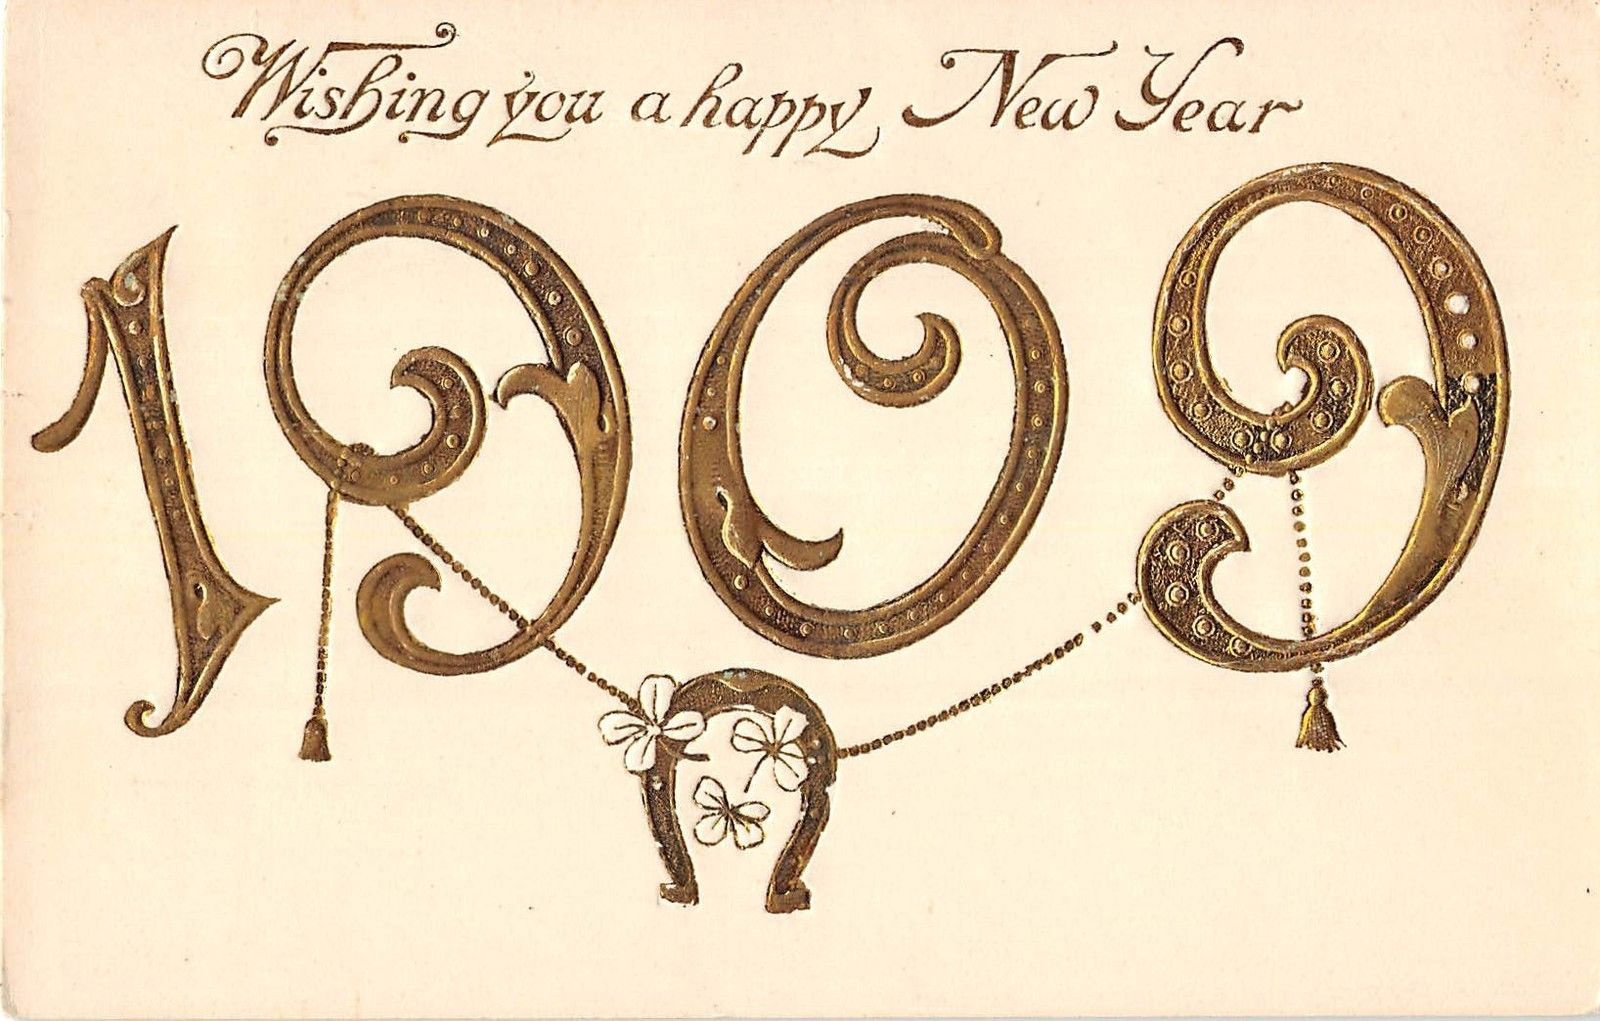 Wishing you a happy New Year
1909